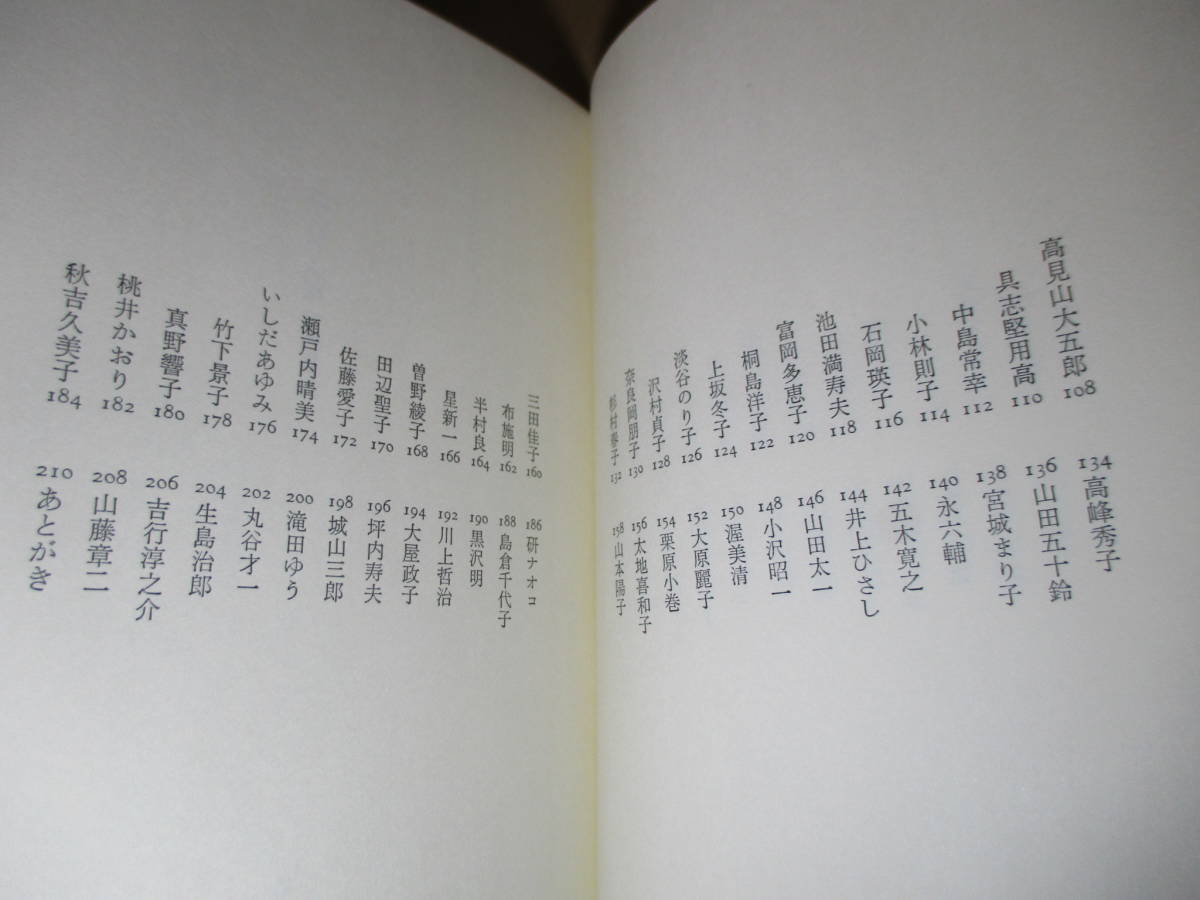 高見山大五郎 108
具志堅用高 110
中島常幸 112
小林則子 114
石岡瑛子 116
池田満寿夫 118
富岡多恵子 120
桐島洋子 122
上坂冬子 124
淡谷のり子 126
沢村貞子 128
奈良岡朋子 130
杉村春子 132
134 高峰秀子
136 山田五十鈴
138 宮城まり子
140 永六輔
142 五木寛之
144 井上ひさし
146 山田太一
148 小沢昭一
150 渥美清
152 大原麗子
154 栗原小巻
156 太地喜和子
158 山本陽子
三田佳子 160
布施明 162
半村良 164
星新一 166
曽野綾子 168
田辺聖子 170
佐藤愛子 172
瀬戸内晴美 174
いしだあゆみ 176
竹下景子 178
真野響子 180
桃井かおり 182
秋吉久美子 184
186 研ナオコ
188 島倉千代子
190 黒沢明
192 川上哲治
194 大屋政子
196 坪内寿夫
198 城山三郎
200 滝田ゆう
202 丸谷才一
204 生島治郎
206 吉行淳之介
208 山藤章二
210 あとがき